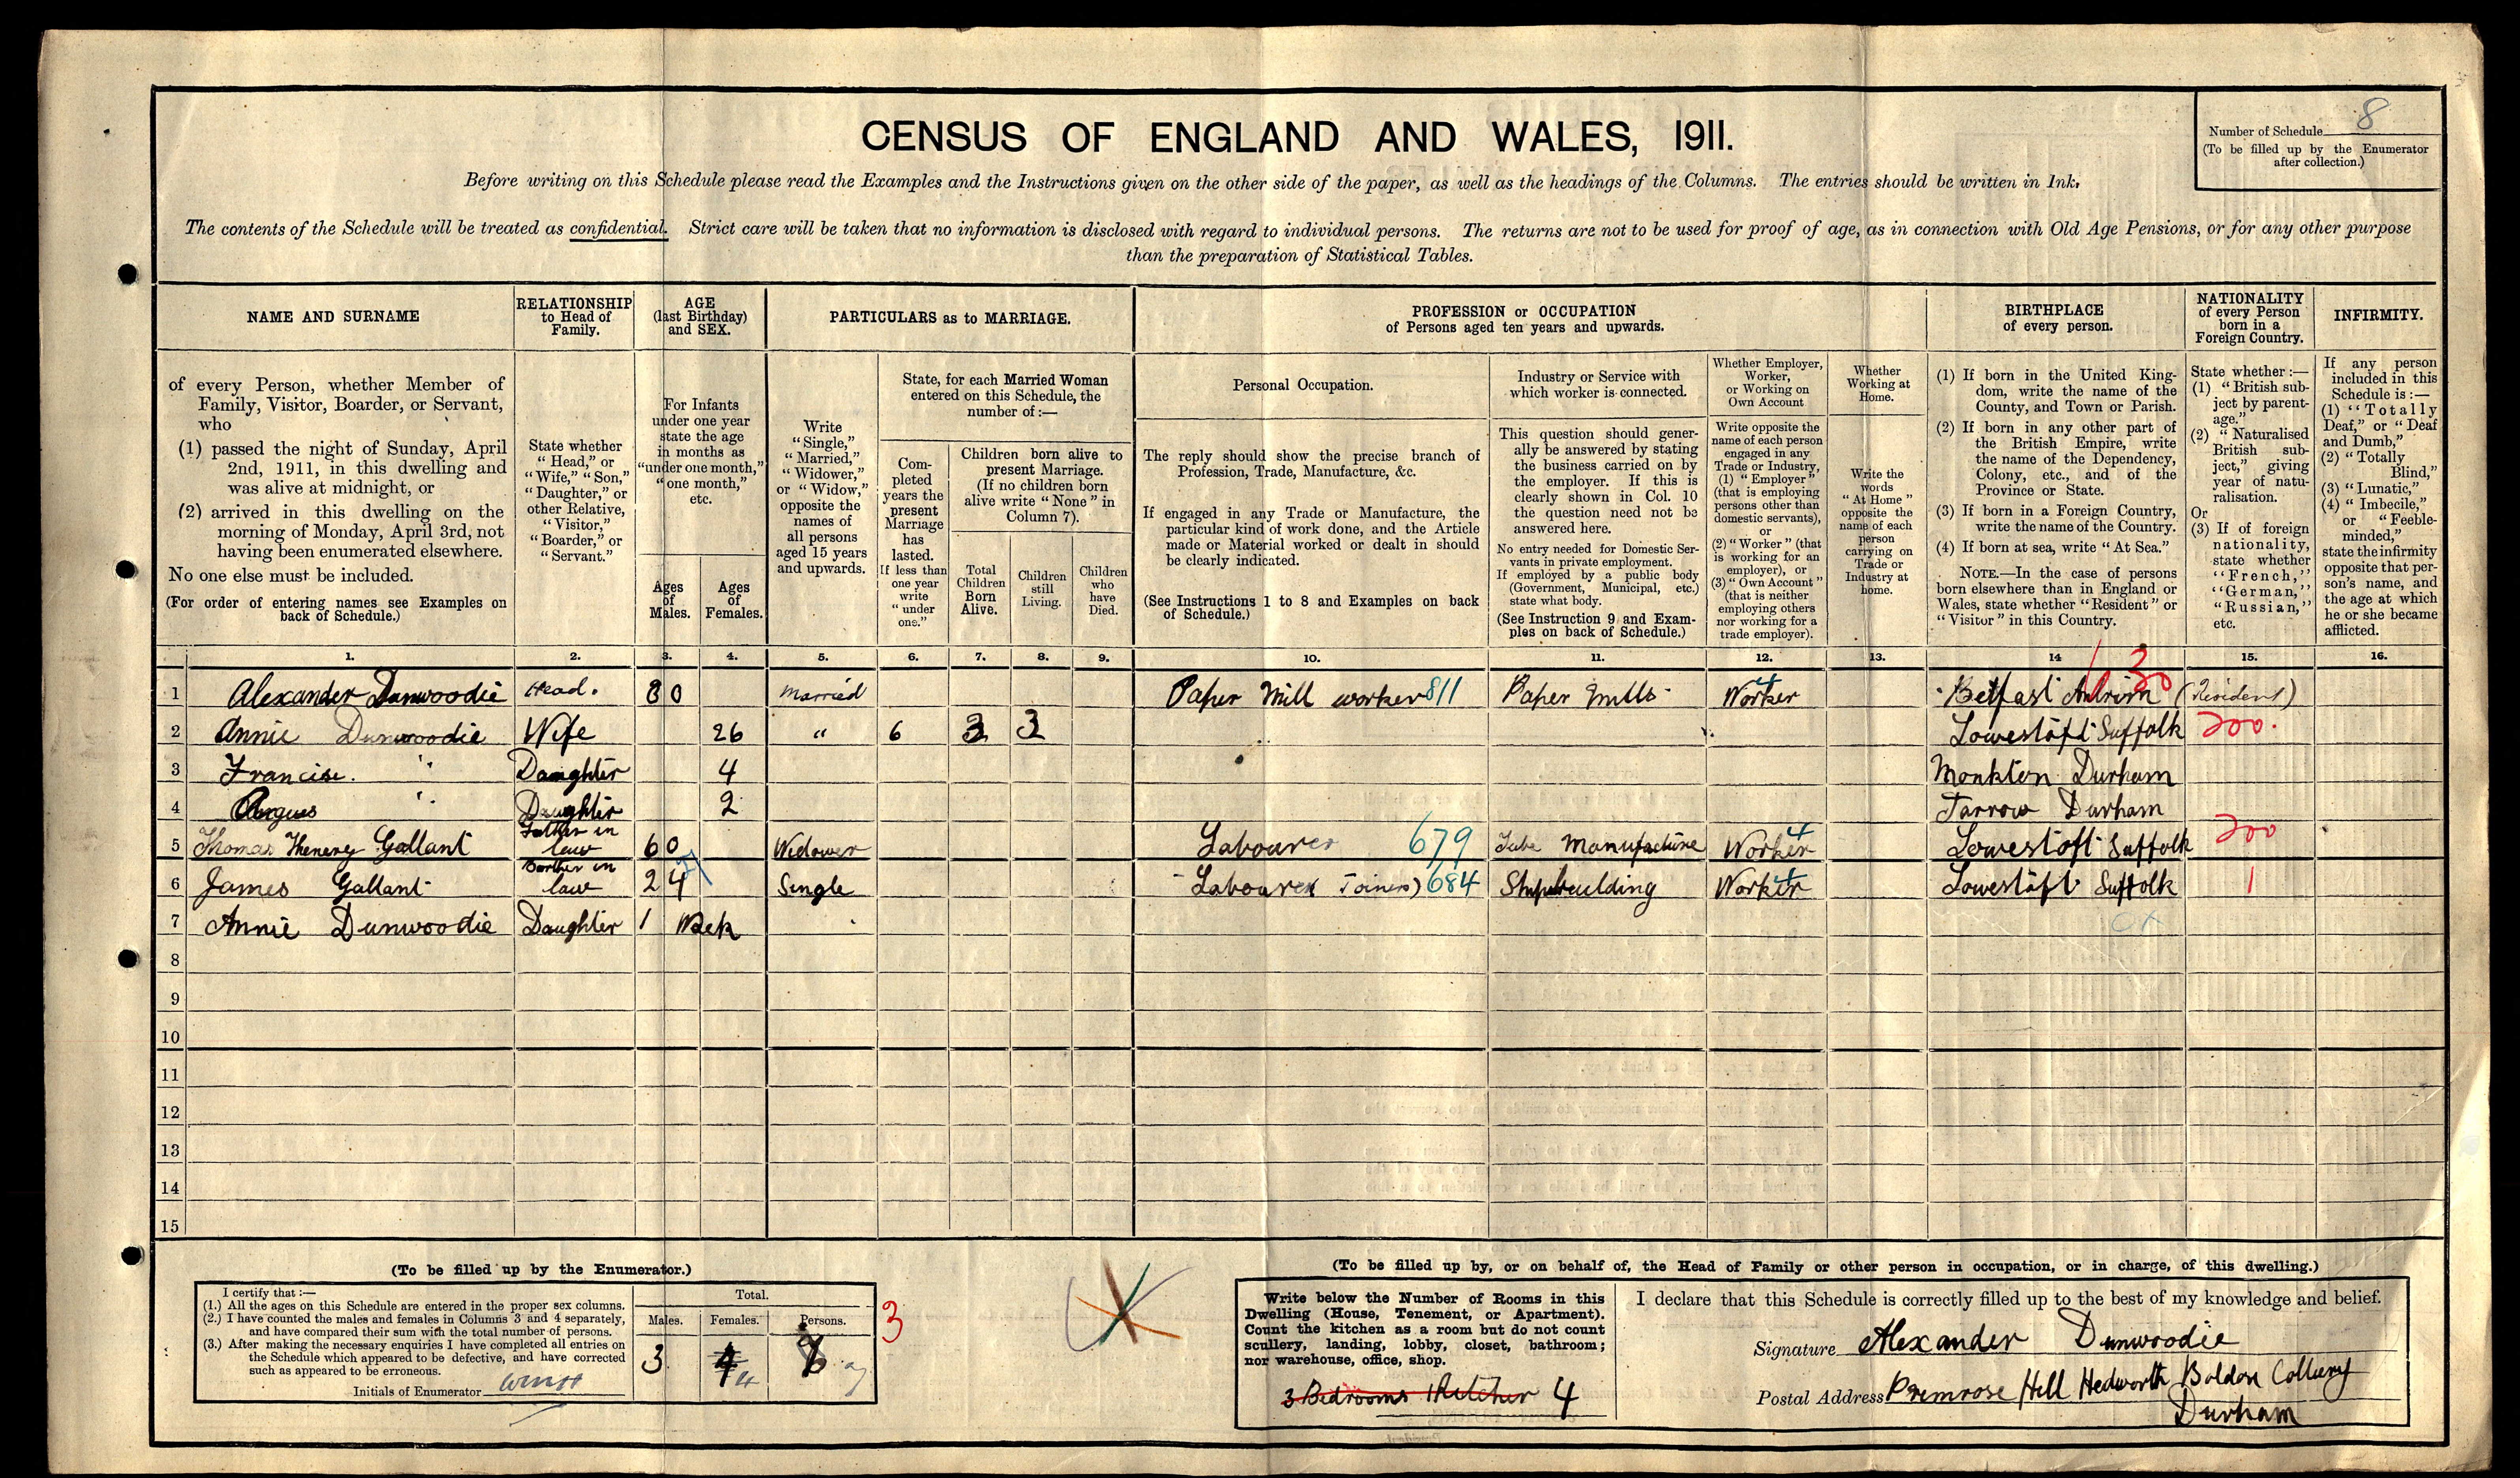 Number of Schedule 8
(To be filled up by the Enumerator
after collection.)
CENSUS OF ENGLAND AND WALES, 1911.
Before writing on this Schedule please read the Examples and the Instructions given on the other side of the paper, as well as the headings of the Columns. The entries should be written in Ink.
The contents of the Schedule will be treated as confidential. Strict care will be taken that no information is disclosed with regard to individual persons. The returns are not to be used for proof of age, as in connection with Old Age Pensions, or for any other purpose
than the preparation of Statistical Tables.
NAME AND SURNAME
of every Person, whether Member of
Family, Visitor, Boarder, or Servant,
who
(1) passed the night of Sunday, April
2nd, 1911, in this dwelling and
was alive at midnight, or
(2) arrived in this dwelling on the
morning of Monday, April 3rd, not
having been enumerated elsewhere.
No one else must be included.
(For order of entering names see Examples on
back of Schedule.)
RELATIONSHIP
to Head of
Family.
State whether
"Head," or
"Wife," "Son,"
"Daughter," or
other Relative,
"Visitor,"
"Boarder," or
"Servant."
AGE
(last Birthday)
and SEX.
For Infants
under one year
state the age
in months as
"under one month,"
"one month,"
etc.
Ages
of
Males.
Ages
of
Females.
PARTICULARS as to MARRIAGE.
Write
"Single,"
"Married,"
"Widower,"
or "Widow,"
opposite the
names of
all persons
aged 15 years
and upwards.
State, for each Married Woman
entered on this Schedule, the
number of:—
Com-
pleted
years the
present
Marriage
has
lasted.
If less than
one year
write
"under
one."
Children born alive to
present Marriage.
(If no children born
alive write "None" in
Column 7).
Total
Children
Born
Alive.
Children
still
Living.
Children
who
have
Died.
PROFESSION or OCCUPATION
of Persons aged ten years and upwards.
Personal Occupation.
The reply should show the precise branch of
Profession, Trade, Manufacture, &c.
If engaged in any Trade or Manufacture, the
particular kind of work done, and the Article
made or Material worked or dealt in should
be clearly indicated.
(See Instructions 1 to 8 and Examples on back
of Schedule.)
Industry or Service with
which worker is connected.
This question should gener-
ally be answered by stating
the business carried on by
the employer. If this is
clearly shown in Col. 10
the question need not be
answered here.
No entry needed for Domestic Ser-
vants in private employment.
If employed by a public body
(Government, Municipal, etc.)
state what body.
(See Instruction 9 and Exam-
ples on back of Schedule.)
Whether Employer,
Worker,
or Working on
Own Account
Write opposite the
name of each person
engaged in any
Trade or Industry,
(1) "Employer"
(that is employing
persons other than
domestic servants),
or
(2) "Worker" (that
is working for an
employer), or
(3) "Own Account"
(that is neither
employing others
nor working for a
trade employer).
Whether
Working at
Home.
Write the
words
"At Home"
opposite the
name of each
person
carrying on
Trade or
Industry at
home.
BIRTHPLACE
of every person.
(1) If born in the United King-
dom, write the name of the
County, and Town or Parish.
(2) If born in any other part of
the British Empire, write
the name of the Dependency,
Colony, etc., and of the
Province or State.
(3) If born in a Foreign Country,
write the name of the Country.
(4) If born at sea, write "At Sea."
NOTE.—In the case of persons
born elsewhere than in England or
Wales, state whether "Resident" or
"Visitor" in this Country.
NATIONALITY
of every Person
born in a
Foreign Country.
State whether :—
(1) "British sub-
ject by parent-
age."
(2) "Naturalised
British sub-
ject," giving
year of natu-
ralisation.
Or
(3) If of foreign
nationality,
state whether
"French,"
"German,"
"Russian,"
etc.
INFIRMITY.
If any person
included in this
Schedule is :—
(1) "Totally
Deaf," or "Deaf
and Dumb,"
(2) "Totally
Blind,"
(3) "Lunatic,"
(4) "Imbecile,"
or "Feeble-
minded,"
state the infirmity
opposite that per-
son's name, and
the age at which
he or she became
afflicted.
1. 2. 3. 4. 5. 6. 7. 8. 9. 10. 11. 12. 13. 14 15. 16.
1 Alexander Dunwoodie Head. 30 Married Paper Mill worker 811 Paper Mills Worker 4 Belfast Antrim (Resident)
2 Annie Dunwoodie Wife 26 " 6 3 3 Lowestoft Suffolk 200.
3 Francise. " Daughter 4 Monkton Durham
4 " Daughter 2 Jarrow Durham
5 Thomas Henery Gallant Father in law 60 Widower Labourer 679 Tube Manufacture Worker 4 Lowestoft Suffolk 200
6 James Gallant Borther in law 24 Single Labourer (Joiners) 684 Shipbuilding Worker 4 Lowestoft Suffolk 1
7 Annie Dunwoodie Daughter 1 Week
8
9
10
11
12
13
14
15
(To be filled up by the Enumerator.)
I certify that :—
(1.) All the ages on this Schedule are entered in the proper sex columns.
(2.) I have counted the males and females in Columns 3 and 4 separately,
and have compared their sum with the total number of persons.
(3.) After making the necessary enquiries I have completed all entries on
the Schedule which appeared to be defective, and have corrected
such as appeared to be erroneous.
Initials of Enumerator
Total.
Males. Females. Persons.
3 4 7
3
(To be filled up by, or on behalf of, the Head of Family or other person in occupation, or in charge, of this dwelling.)
Write below the Number of Rooms in this
Dwelling (House, Tenement, or Apartment).
Count the kitchen as a room but do not count
scullery, landing, lobby, closet, bathroom;
nor warehouse, office, shop.
3 Bedrooms 1 Kitchen 4
I declare that this Schedule is correctly filled up to the best of my knowledge and belief.
Signature Alexander Dunwoodie
Postal Address Primrose Hill Hedworth Boldon Colliery
Durham